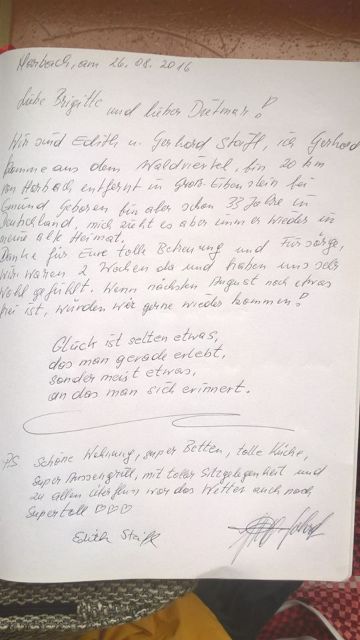 Harbach, am 26.08.2016
Liebe Brigitte
und lieber Dietmar!
Wir sind Edith u. Gerhard Staffl, ich Gerhard
stamme aus dem Waldviertel, bin 20 km
von Harbach entfernt in Groß-Eibenstein bei
Gmünd geboren bin aber schon 35 Jahre in
Deutschland, mich zieht es aber immer wieder in
meine alte Heimat.
Danke für Eure tolle Betreuung und Fürsorge,
wir waren 2 Wochen da und haben uns sehr
wohl gefühlt. Wenn nächsten August noch etwas
frei ist, würden wir gerne wieder kommen!
Glück ist selten etwas,
das man gerade erlebt,
sonder meist etwas,
an das man sich erinnert.
PS Schöne Wohnung, super Betten, tolle Küche,
super Aussengrill, mit toller Sitzgelegenheit und
zu allen überfluss war das Wetter auch noch
Supertoll ♡♡♡
Edith